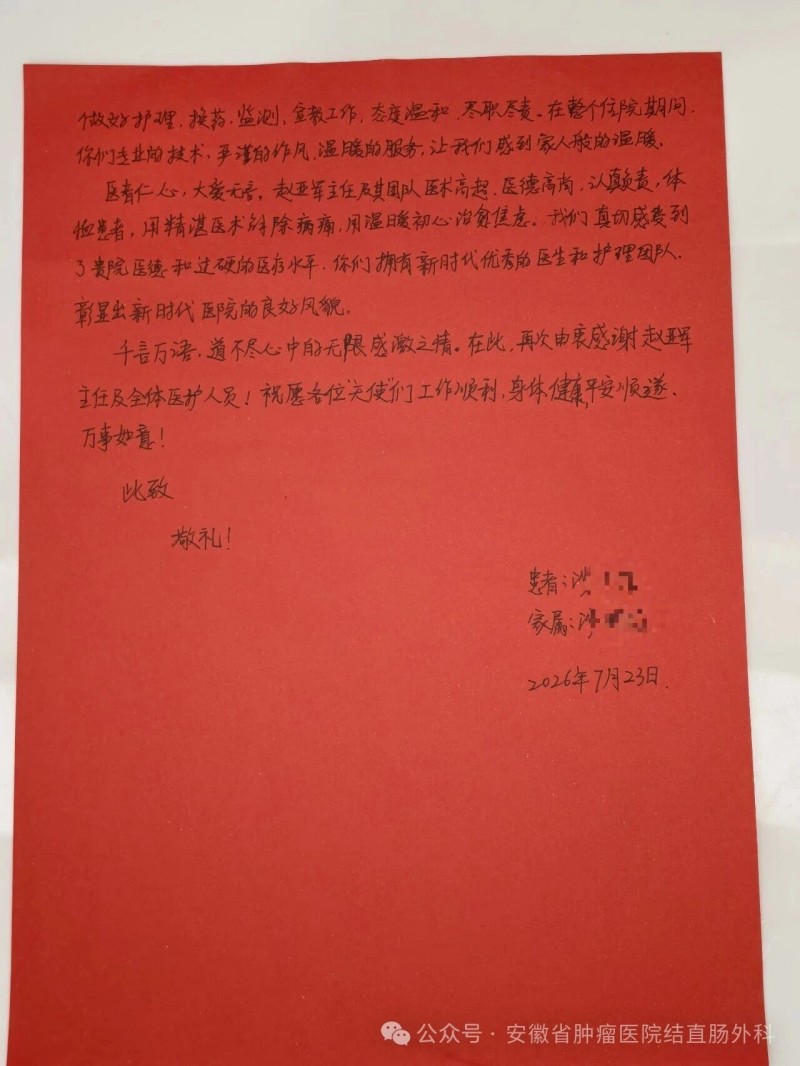 做好护理、换药、监测、宣教工作，态度温和、尽职尽责。在整个住院期间，
你们专业的技术，严谨的作风，温暖的服务，让我们感到家人般的温暖。
医者仁心，大爱无言。赵亚军主任及其团队医术高超、医德高尚，认真负责，体
恤患者，用精湛医术解除病痛，用温暖初心治愈焦虑。我们真切感受到
了贵院医德和过硬的医疗水平，你们拥有新时代优秀的医生和护理团队，
彰显出新时代医院的良好风貌。
千言万语，道不尽心中的无限感激之情。在此，再次由衷感谢赵亚军
主任及全体医护人员！祝愿各位"天使"们工作顺利，身体健康，平安顺遂、
万事如意！
此致
敬礼！
患者：沙
家属：沙
2026年7月23日
公众号·安徽省肿瘤医院结直肠外科